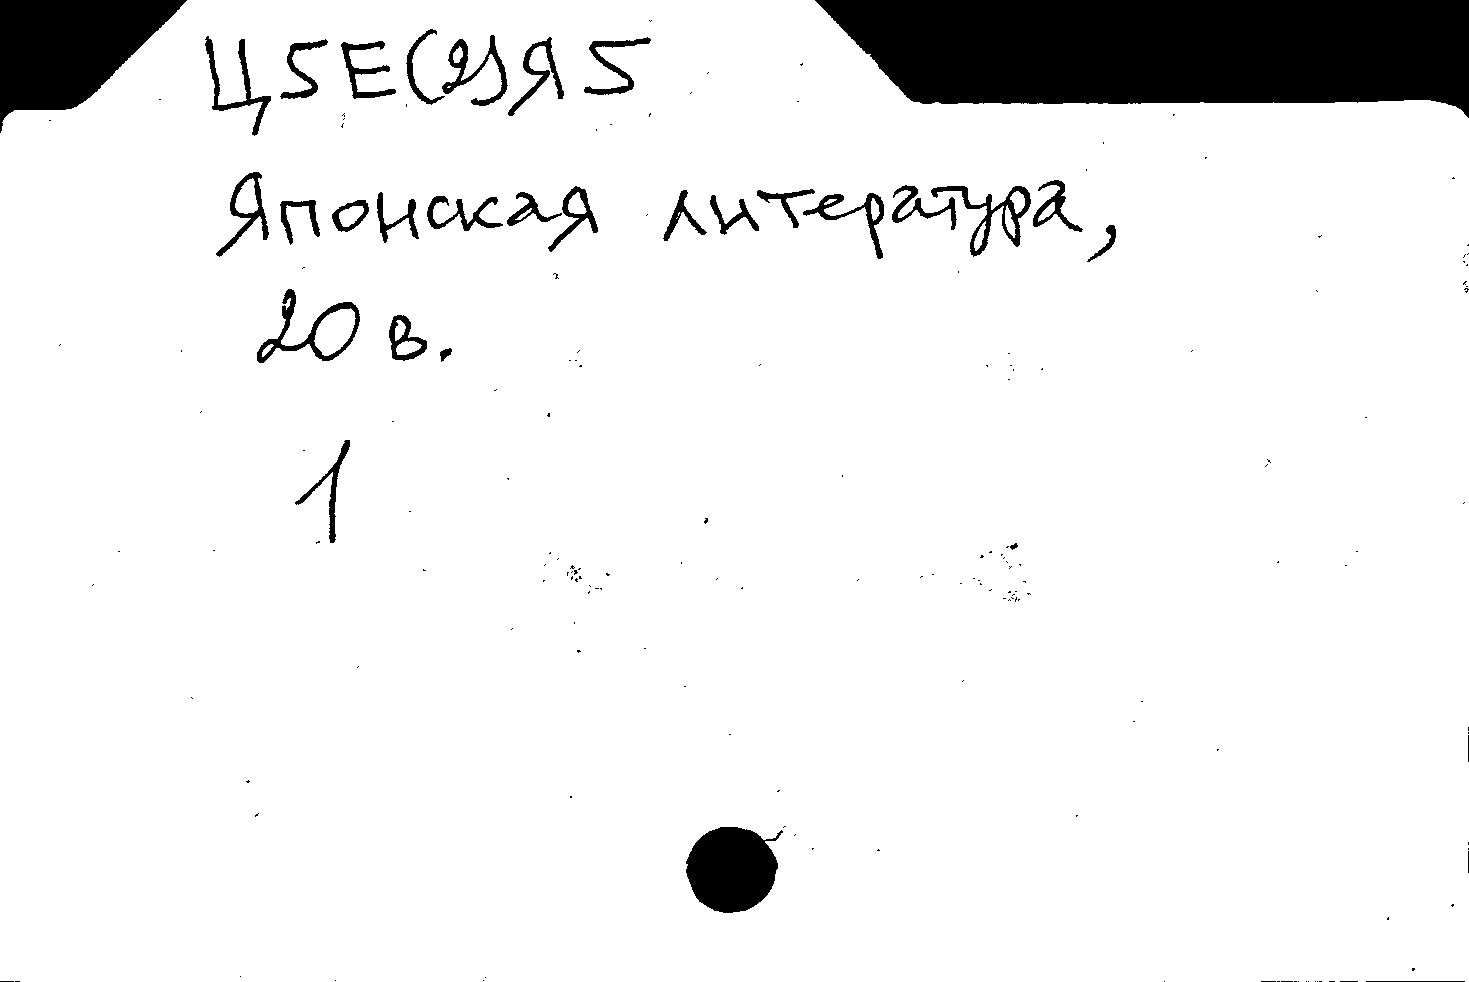 Ц5Е(2)Я5
Японская литература,
20 в.
1